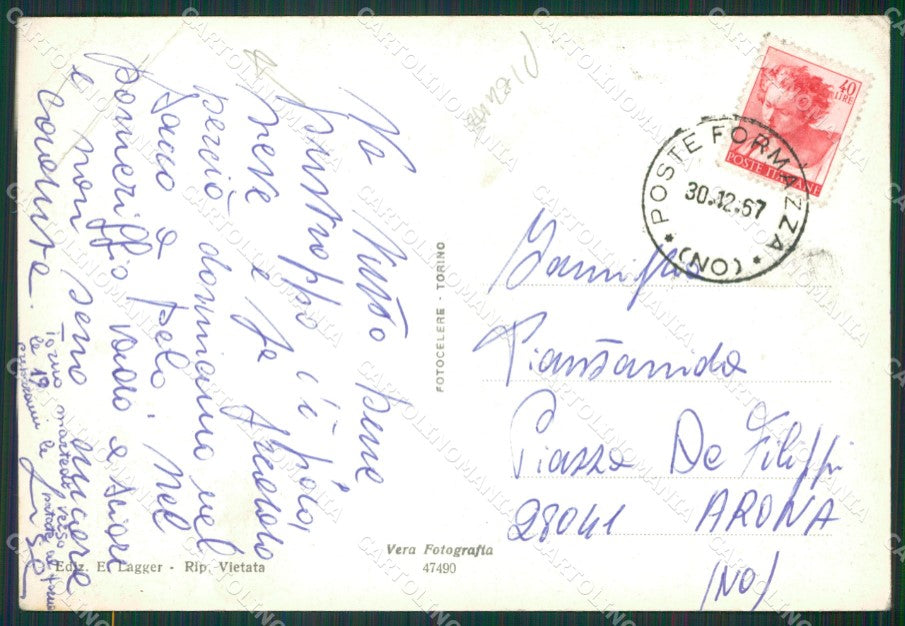 Va tutto bene
purtroppo c'è poca
neve e fa freddo
perciò dormiamo nel
sacco a pelo. Nel
pomeriggio vado a sciare
e non sono ancora
caduta.
Torno martedì verso
le 19
Pianz
40
LIRE
POSTE ITALIANE
POSTE FORMAZZA
30.12.67
(NO)
Famiglia
Piantanida
Piazza De Filippi
28041 ARONA
(NO)
FOTOCELERE - TORINO
Vera Fotografia
47490
Ediz. E. Lagger - Rip. Vietata
CARTOLINOMANIA